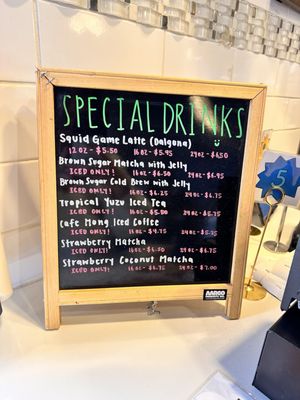 SPECIAL DRINKS
Squid Game Latte (Dalgona)
12oz - $5.50 16oz - $5.95 24oz - $6.50
Brown Sugar Matcha with Jelly
ICED ONLY! 16oz - $6.50 24oz - $6.95
Brown Sugar Cold Brew with Jelly
ICED ONLY! 16oz - $6.25 24oz - $6.75
Tropical Yuzu Iced Tea
ICED ONLY! 16oz - $5.50 24oz - $5.75
Cafe Mong Iced Coffee
ICED ONLY! 16oz - $4.75 24oz - $5.75
Strawberry Matcha
ICED ONLY! 16oz - $6.50 24oz - $6.75
Strawberry Coconut Matcha
ICED ONLY! 16oz - $6.75 24oz - $7.00
AARCO
5